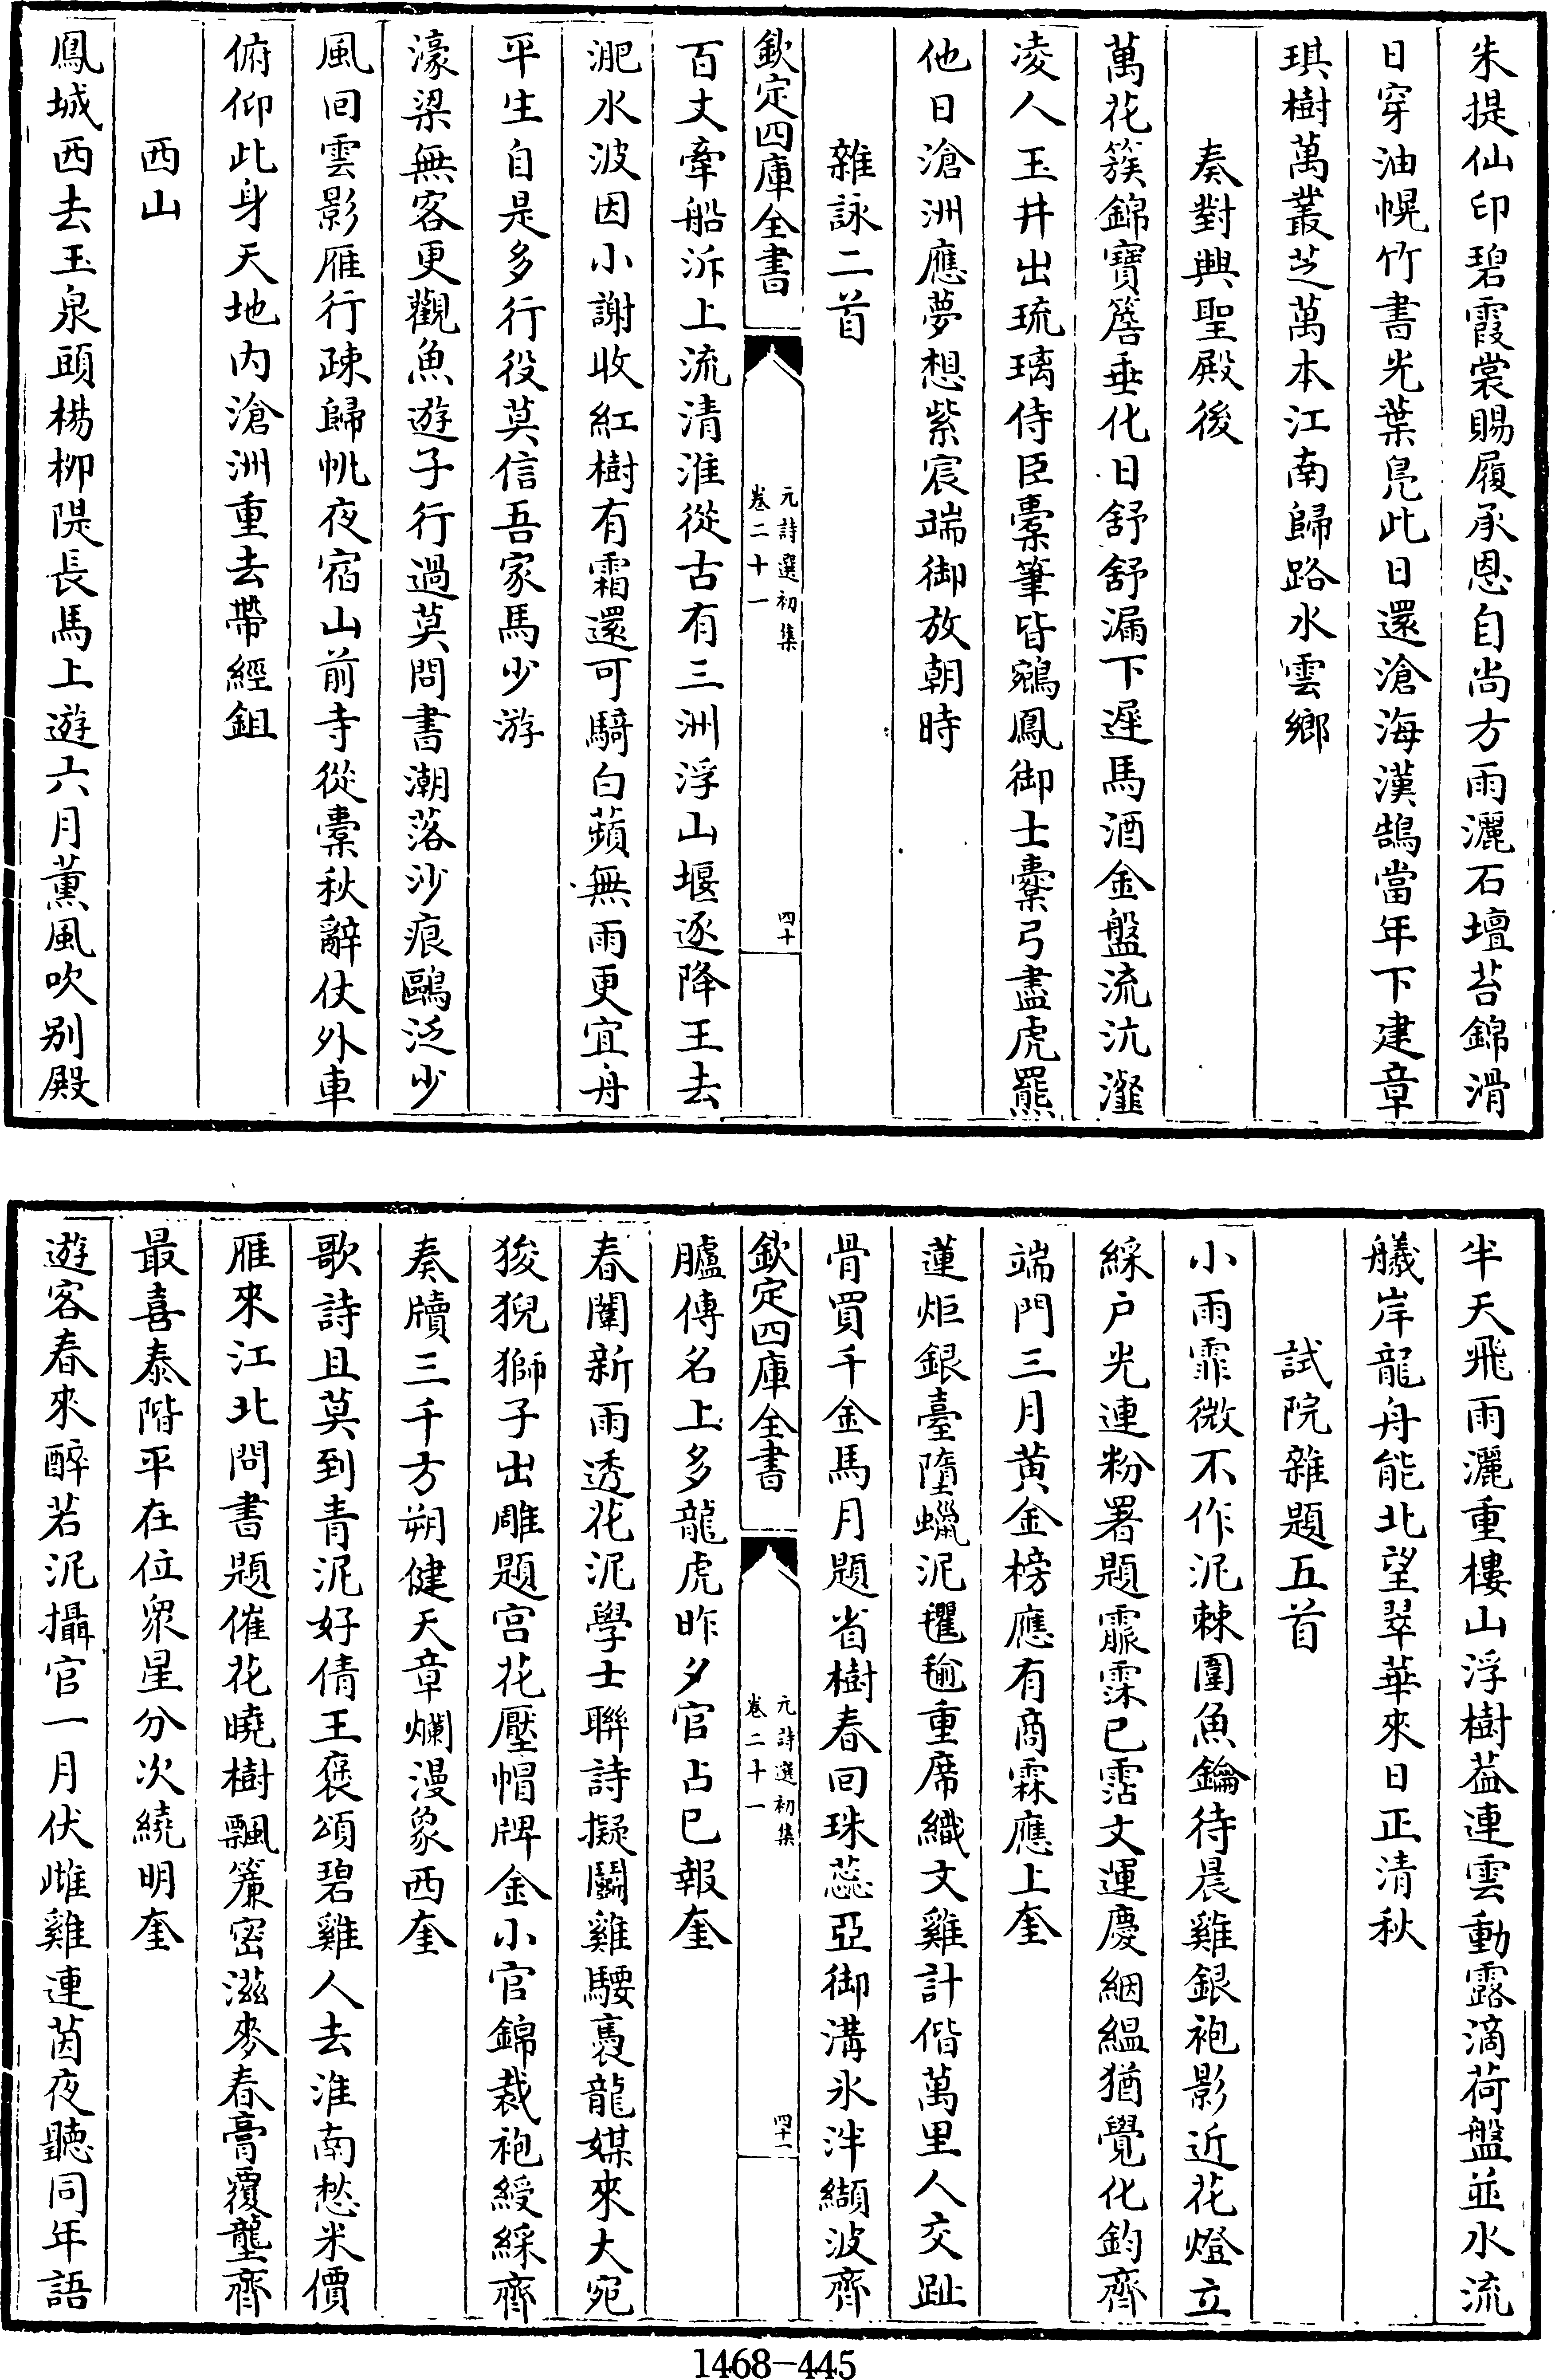 朱提仙印碧霞裳賜履承恩自尚方雨灑石壇苔錦滑
日穿油幌竹書光葉鳧此日還滄海漢鵠當年下建章
琪樹萬叢芝萬本江南歸路水雲鄉
奏對興聖殿後
萬花簇錦寶簷垂化日舒舒漏下遲馬酒金盤流沆瀣
凌人玉井出琉璃侍臣橐筆皆鵷鳳御士櫜弓盡虎羆
他日滄洲應夢想紫宸端御放朝時
雜詠二首
欽定四庫全書
元詩選初集
卷二十一
四十
百丈牽船泝上流清淮從古有三洲浮山堰逐降王去
淝水波因小謝收紅樹有霜還可騎白蘋無雨更宜舟
平生自是多行役莫信吾家馬少游
濠梁無客更觀魚遊子行過莫問書潮落沙痕鷗泛少
風回雲影雁行疎歸帆夜宿山前寺從橐秋辭仗外車
俯仰此身天地内滄洲重去帶經鉏
西山
鳳城西去玉泉頭楊柳隄長馬上遊六月薰風吹别殿
半天飛雨灑重樓山浮樹葢連雲動露滴荷盤並水流
艤岸龍舟能北望翠華來日正清秋
試院雜題五首
小雨霏微不作泥棘圍魚鑰待晨雞銀袍影近花燈立
綵户光連粉署題霢霂已霑文運慶絪縕猶覺化鈞齊
端門三月黄金榜應有商霖應上奎
蓮炬銀臺墮蠟泥氍毹重席織文雞計偕萬里人交趾
骨買千金馬月題省樹春回珠蕊亞御溝氷泮纈波齊
欽定四庫全書
元詩選初集
卷二十一
四十一
臚傳名上多龍虎昨夕官占已報奎
春闈新雨透花泥學士聯詩擬鬭雞騕褭龍媒來大宛
狻猊獅子出雕題宫花壓帽牌金小官錦裁袍綬綵齊
奏牘三千方朔健天章爛漫象西奎
歌詩且莫到青泥好倩王褒頌碧雞人去淮南愁米價
雁來江北問書題催花曉樹飄簾密滋麥春膏覆壟齊
最喜泰階平在位衆星分次繞明奎
遊客春來醉若泥攝官一月伏雌雞連茵夜聽同年語
1468-445